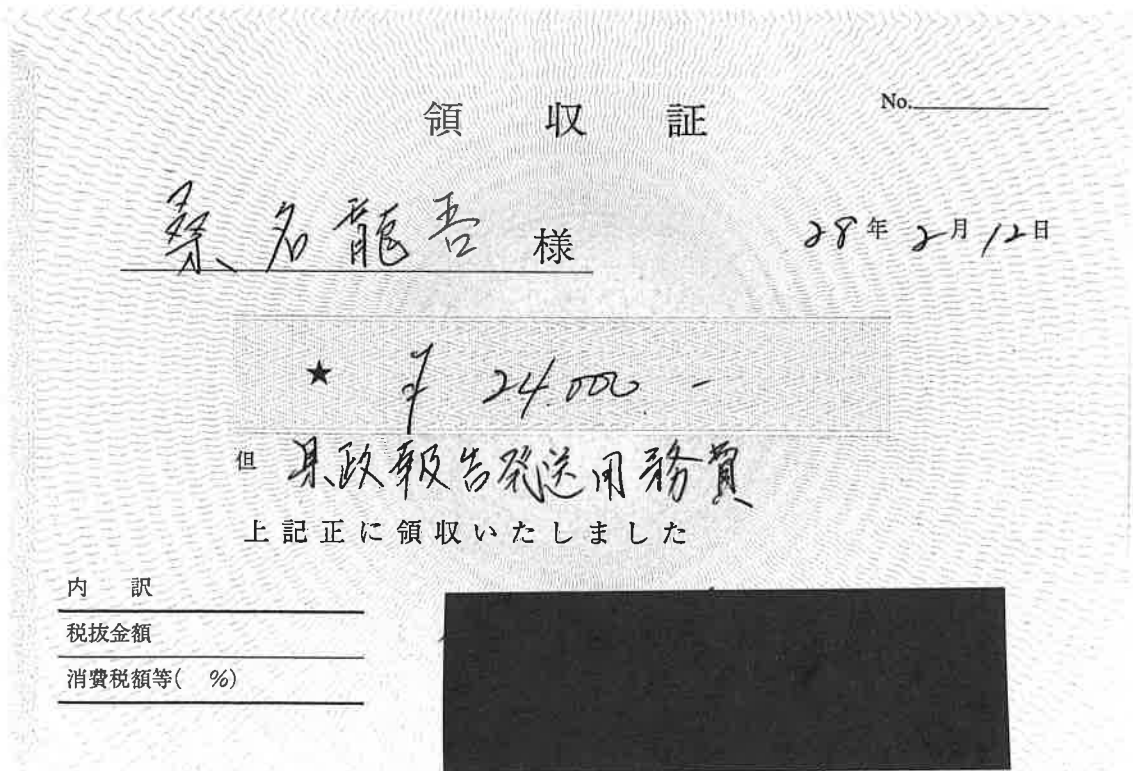 領収証
No.
桑名龍吾 様
28年 2月 12日
★ ¥ 24.000.-
但 県政報告発送用務費
上記正に領収いたしました
内 訳
税抜金額
消費税額等( %)